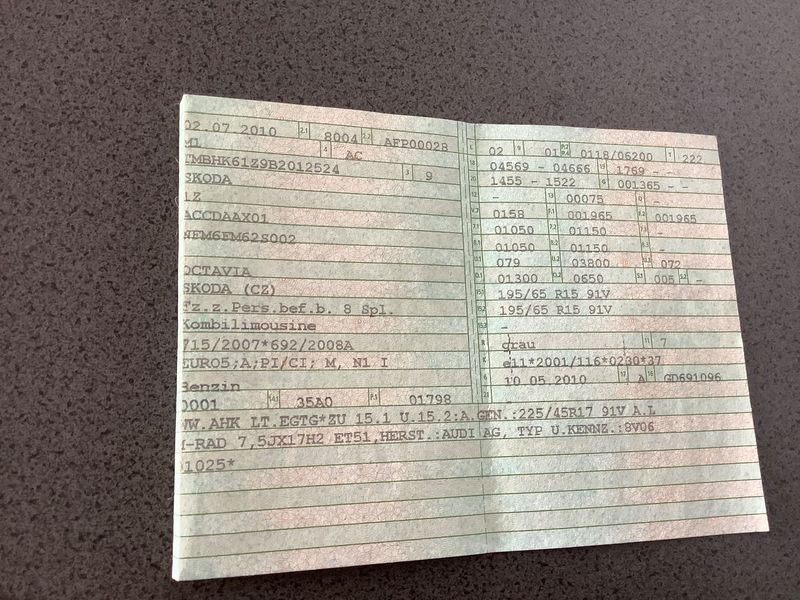 02.07.2010 2.1 8004 2.2 AFP00028
M1 4 AC
TMBHK61Z9B2012524 3 9
SKODA
1Z
ACCDAAX01
NEM6FM62S002
OCTAVIA
SKODA (CZ)
Fz.z.Pers.bef.b. 8 Spl.
Kombilimousine
715/2007*692/2008A
EURO5;A;PI/CI; M, N1 I
Benzin
0001 14.1 35A0 P.1 01798
L 02 9 01 P.2 P.4 0118/06200 T 222
18 04569 - 04666 19 1769 - -
20 1455 - 1522 G 001365 - -
12 - 13 00075 Q -
V.7 0158 F.1 001965 F.2 001965
7.1 01050 7.2 01150 7.3 -
8.1 01050 8.2 01150 8.3 -
U.1 079 U.2 03800 U.3 072
O.1 01300 O.2 0650 S.1 005 S.2 -
15.1 195/65 R15 91V
15.2 195/65 R15 91V
15.3 -
R grau 11 7
K e11*2001/116*0230*37
6 10.05.2010 17 A 16 GD691096
21 -
WW.AHK LT.EGTG*ZU 15.1 U.15.2:A.GEN.:225/45R17 91V A.L
-RAD 7,5JX17H2 ET51,HERST.:AUDI AG, TYP U.KENNZ.:8V06
01025*